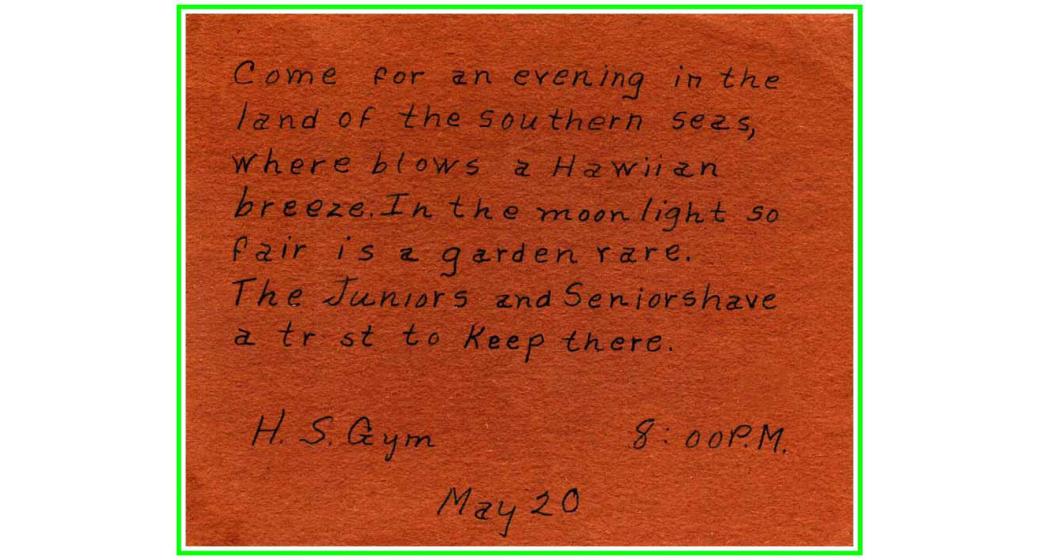 Come for an evening in the
land of the southern seas,
where blows a Hawiian
breeze. In the moonlight so
fair is a garden rare.
The Juniors and Seniors have
a tr st to keep there.
H. S. Gym 8:00 P.M.
May 20